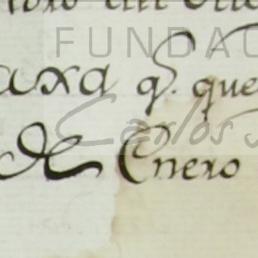 FUNDAC
axa q. que
Carlos
de Enero